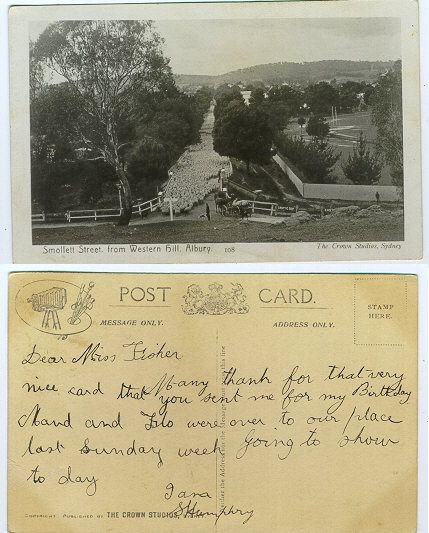 Smollett Street. from Western Hill. Albury. 108
The Crown Studios, Sydney
POST CARD.
MESSAGE ONLY.
ADDRESS ONLY.
STAMP
HERE.
Dear Miss Fisher
Many thank for that very
nice card that you sent me for my Birthday
Maud and Flo were over to our place
last Sunday week Going to show
to day
S Humphry
COPYRIGHT. PUBLISHED BY THE CROWN STUDIOS,
the Address only to be Written
this line